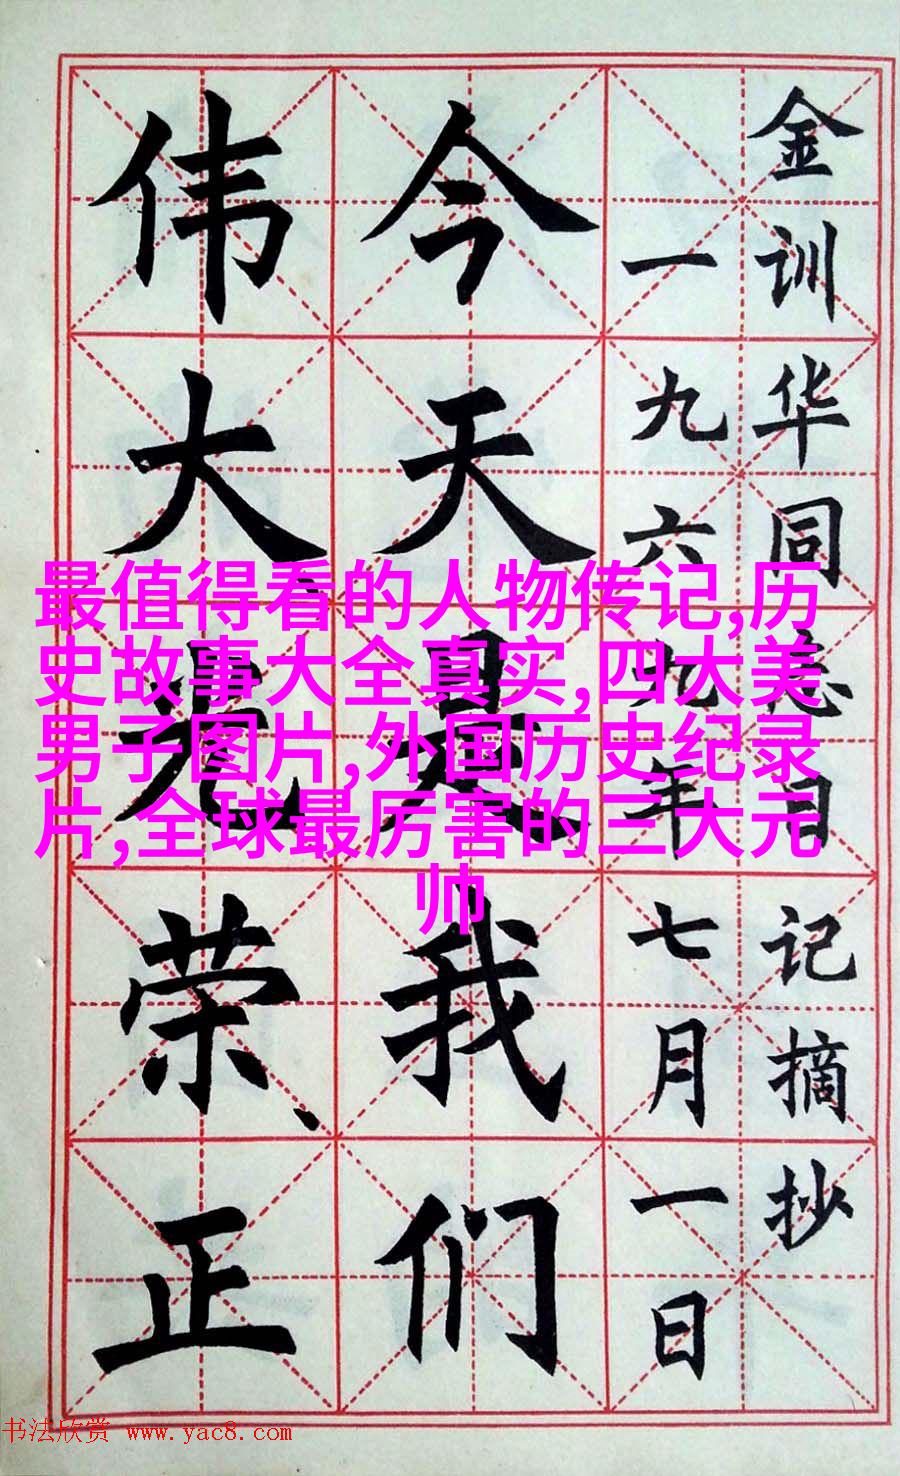 金训华同志日记摘抄
一九六九年七月一日
今天是我们
伟大光荣、正
最值得看的人物传记,历
史故事大全真实,四大美
男子图片,外国历史纪录
片,全球最厉害的三大元
帅
书法欣赏 www.yac8.com